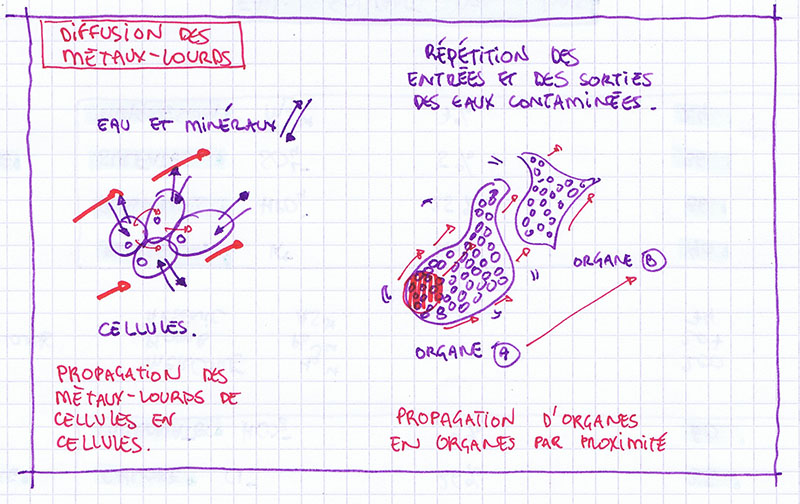 DIFFUSION DES
MÈTAUX-LOURDS
EAU ET MINÉRAUX
CELLULES.
PROPAGATION DES
MÈTAUX-LOURDS DE
CELLULES EN
CELLULES.
RÉPÉTITION DES
ENTRÉES ET DES SORTIES
DES EAUX CONTAMINÉES.
ORGANE B
ORGANE A
PROPAGATION D'ORGANES
EN ORGANES PAR PROXIMITÉ